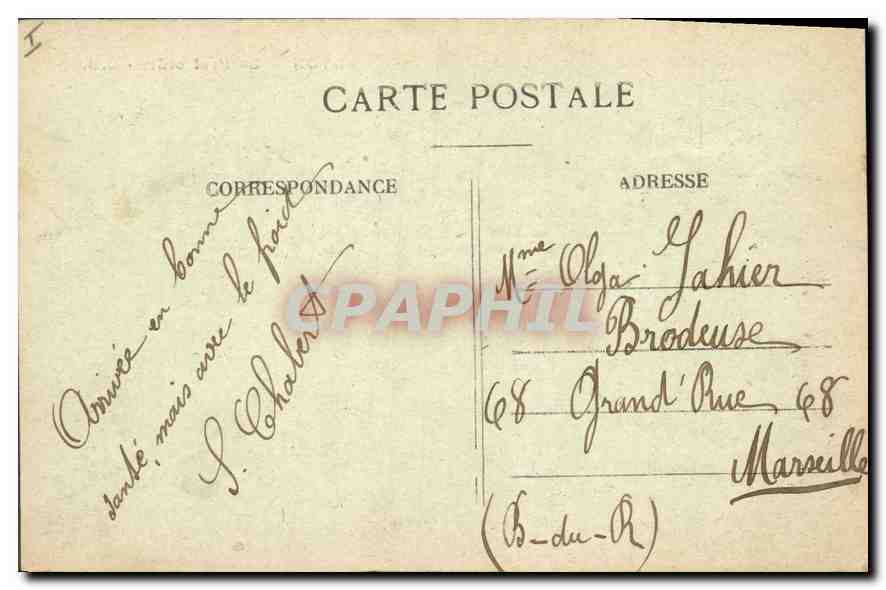 I
CARTE POSTALE
CORRESPONDANCE
Arrivée en bonne
santé, mais avec le froid
S. Chabert
ADRESSE
Mme Olga Jahier
Brodeuse
68 Grand' Rue 68
Marseille
(B-du-R)
CPAPHIL